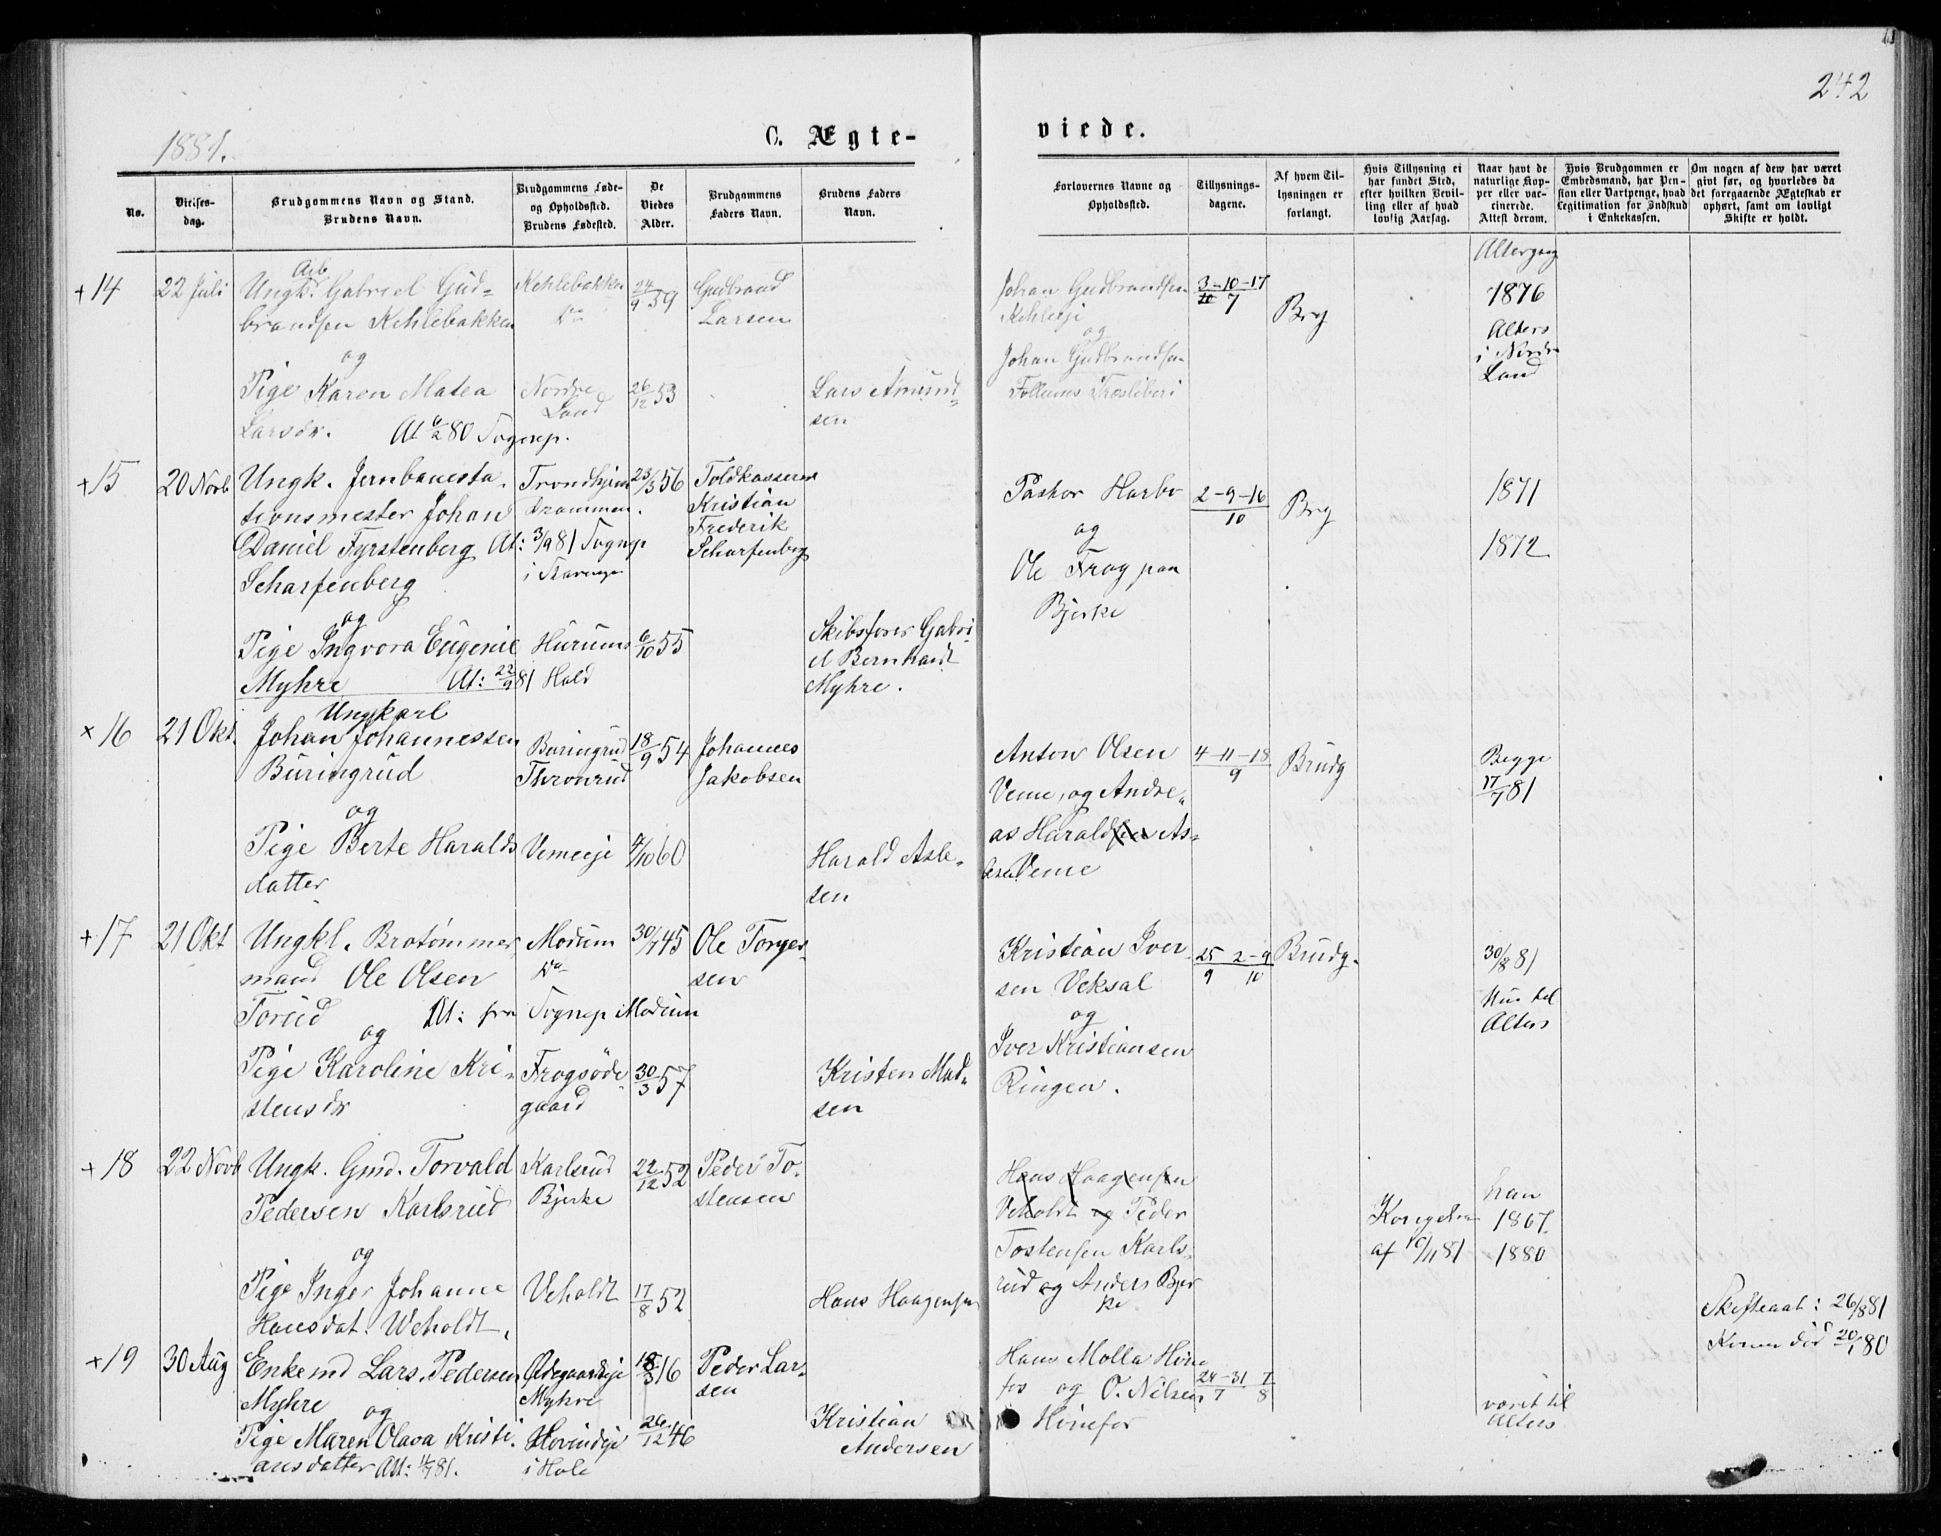 242
1881.
C. Ægte-
viede.
No.
Vielses-
dag.
Brudgommens Navn og Stand.
Brudens Navn.
Brudgommens Føde-
og Opholdssted.
Brudens Fødested.
De
Viedes
Alder.
Brudgommens
Faders Navn.
Brudens Faders
Navn.
Forlovernes Navne og
Opholdssted.
Tillysnings-
dagene.
Af hvem Til-
lysningen er
forlangt.
Hvis Tillysning ei
har fundet Sted,
efter hvilken Bevil-
ling eller af hvad
lovlig Aarsag.
Naar havt de
naturlige Kop-
per eller vac-
cinerede.
Attest derom.
Hvis Brudgommen er
Embedsmand, har Pen-
sion eller Vartpenge, hvad
Legitimation for Indskud
i Enkekassen.
Om nogen af dem har været
givt før, og hvorledes da
det foregaaende Ægteskab er
ophørt, samt om lovligt
Skifte er holdt.
+14
22 Juli
Arb
Ungk. Gabriel Gud-
brandsen Kehlebakken
og
Pige Karen Matea
Larsdr. At 6/2 80 Sognep.
Kehlebakken
Do
Nordre
Land
24/9 59
26/12 53
Gudbrand
Larsen
Lars Amund-
sen
Johan Gudbrandsen
og
Johan Gudbrandsen
3-10-17
7
Brg
Altergang
1876
Alters
i Nordre
Land
+15
20 Novb
Ungk. Jernbanesta-
tionsmester Johan
Daniel Fyrstenberg At: 3/9 81 Sognep
Scharfenberg i Stavanger
og
Pige Ingvora Eugenie
Myhre At: 22/9 81 Hold
Trondhjem
Drammen.
Hurums
23/5 56
6/10 55
Toldkasserer
Kristian
Frederik
Scharfenberg
Skibsfører Gabri-
el Bernhardt
Myhre.
Pastor Harbo
og
Ole Frog paa
Bjerke
2-9-16
10
Brg
1871
1872
× 16
21 Okt.
Ungkarl
Johan Johannessen
Buringrud
og
Pige Berte Haralds
datter
Buringrud
Thronrud
Vemeeje
18/9 54
4/10 60
Johannes
Jakobsen
Harald Asle-
sen
Anton Olsen
Veme, og Andre-
as Haraldsen As-
lesen Veme
4-11-18
9
Brudg
Begge
17/7 81
+17
21 Okt
Ungkl. Brotømmer
mand Ole Olsen
Torud At: fra Sognep Modum
og
Pige Karoline Kri-
stensdr
Modum
Do
Frogsøde
gaard
30/7 45
30/3 57
Ole Torger-
sen
Kristen Mad-
sen
Kristian Iver-
sen Veksal
og
Iver Kristiansen
Ringen.
25 2-9
9 10
Brudg.
30/8 81
Hun til
Alters
+18
22 Novb
Ungk. Gmd. Torvald
Pedersen Karlsrud
og
Pige Inger Johanne
Hansdat. Weholdt.
Karlsrud
Bjerke
Veholdt
22/12 52
17/8 52
Peder To-
stensen
Hans Haagensen
Hans Haagensen
Veholdt og Peder
Tostensen Karls-
rud og Anders Bjer
ke
af 10/11 81
han
1867
1880
+19
30 Aug
Enkemd Lars Pedersen
Myhre og
Pige Maren Olava Kristi-
ansdatter Att: 11/7 81.
Ødegaardseje
Myhre
Hovindeje
i Hole
18/3 16
26/12 46
Peder Lar-
sen
Kristian
Andersen
Hans Molla Høne
fos og O. Nilsen
Hønefos
24-31 7
7 8
været til
Alters
Skifteaat: 26/8 81
Konen død 20/1 80